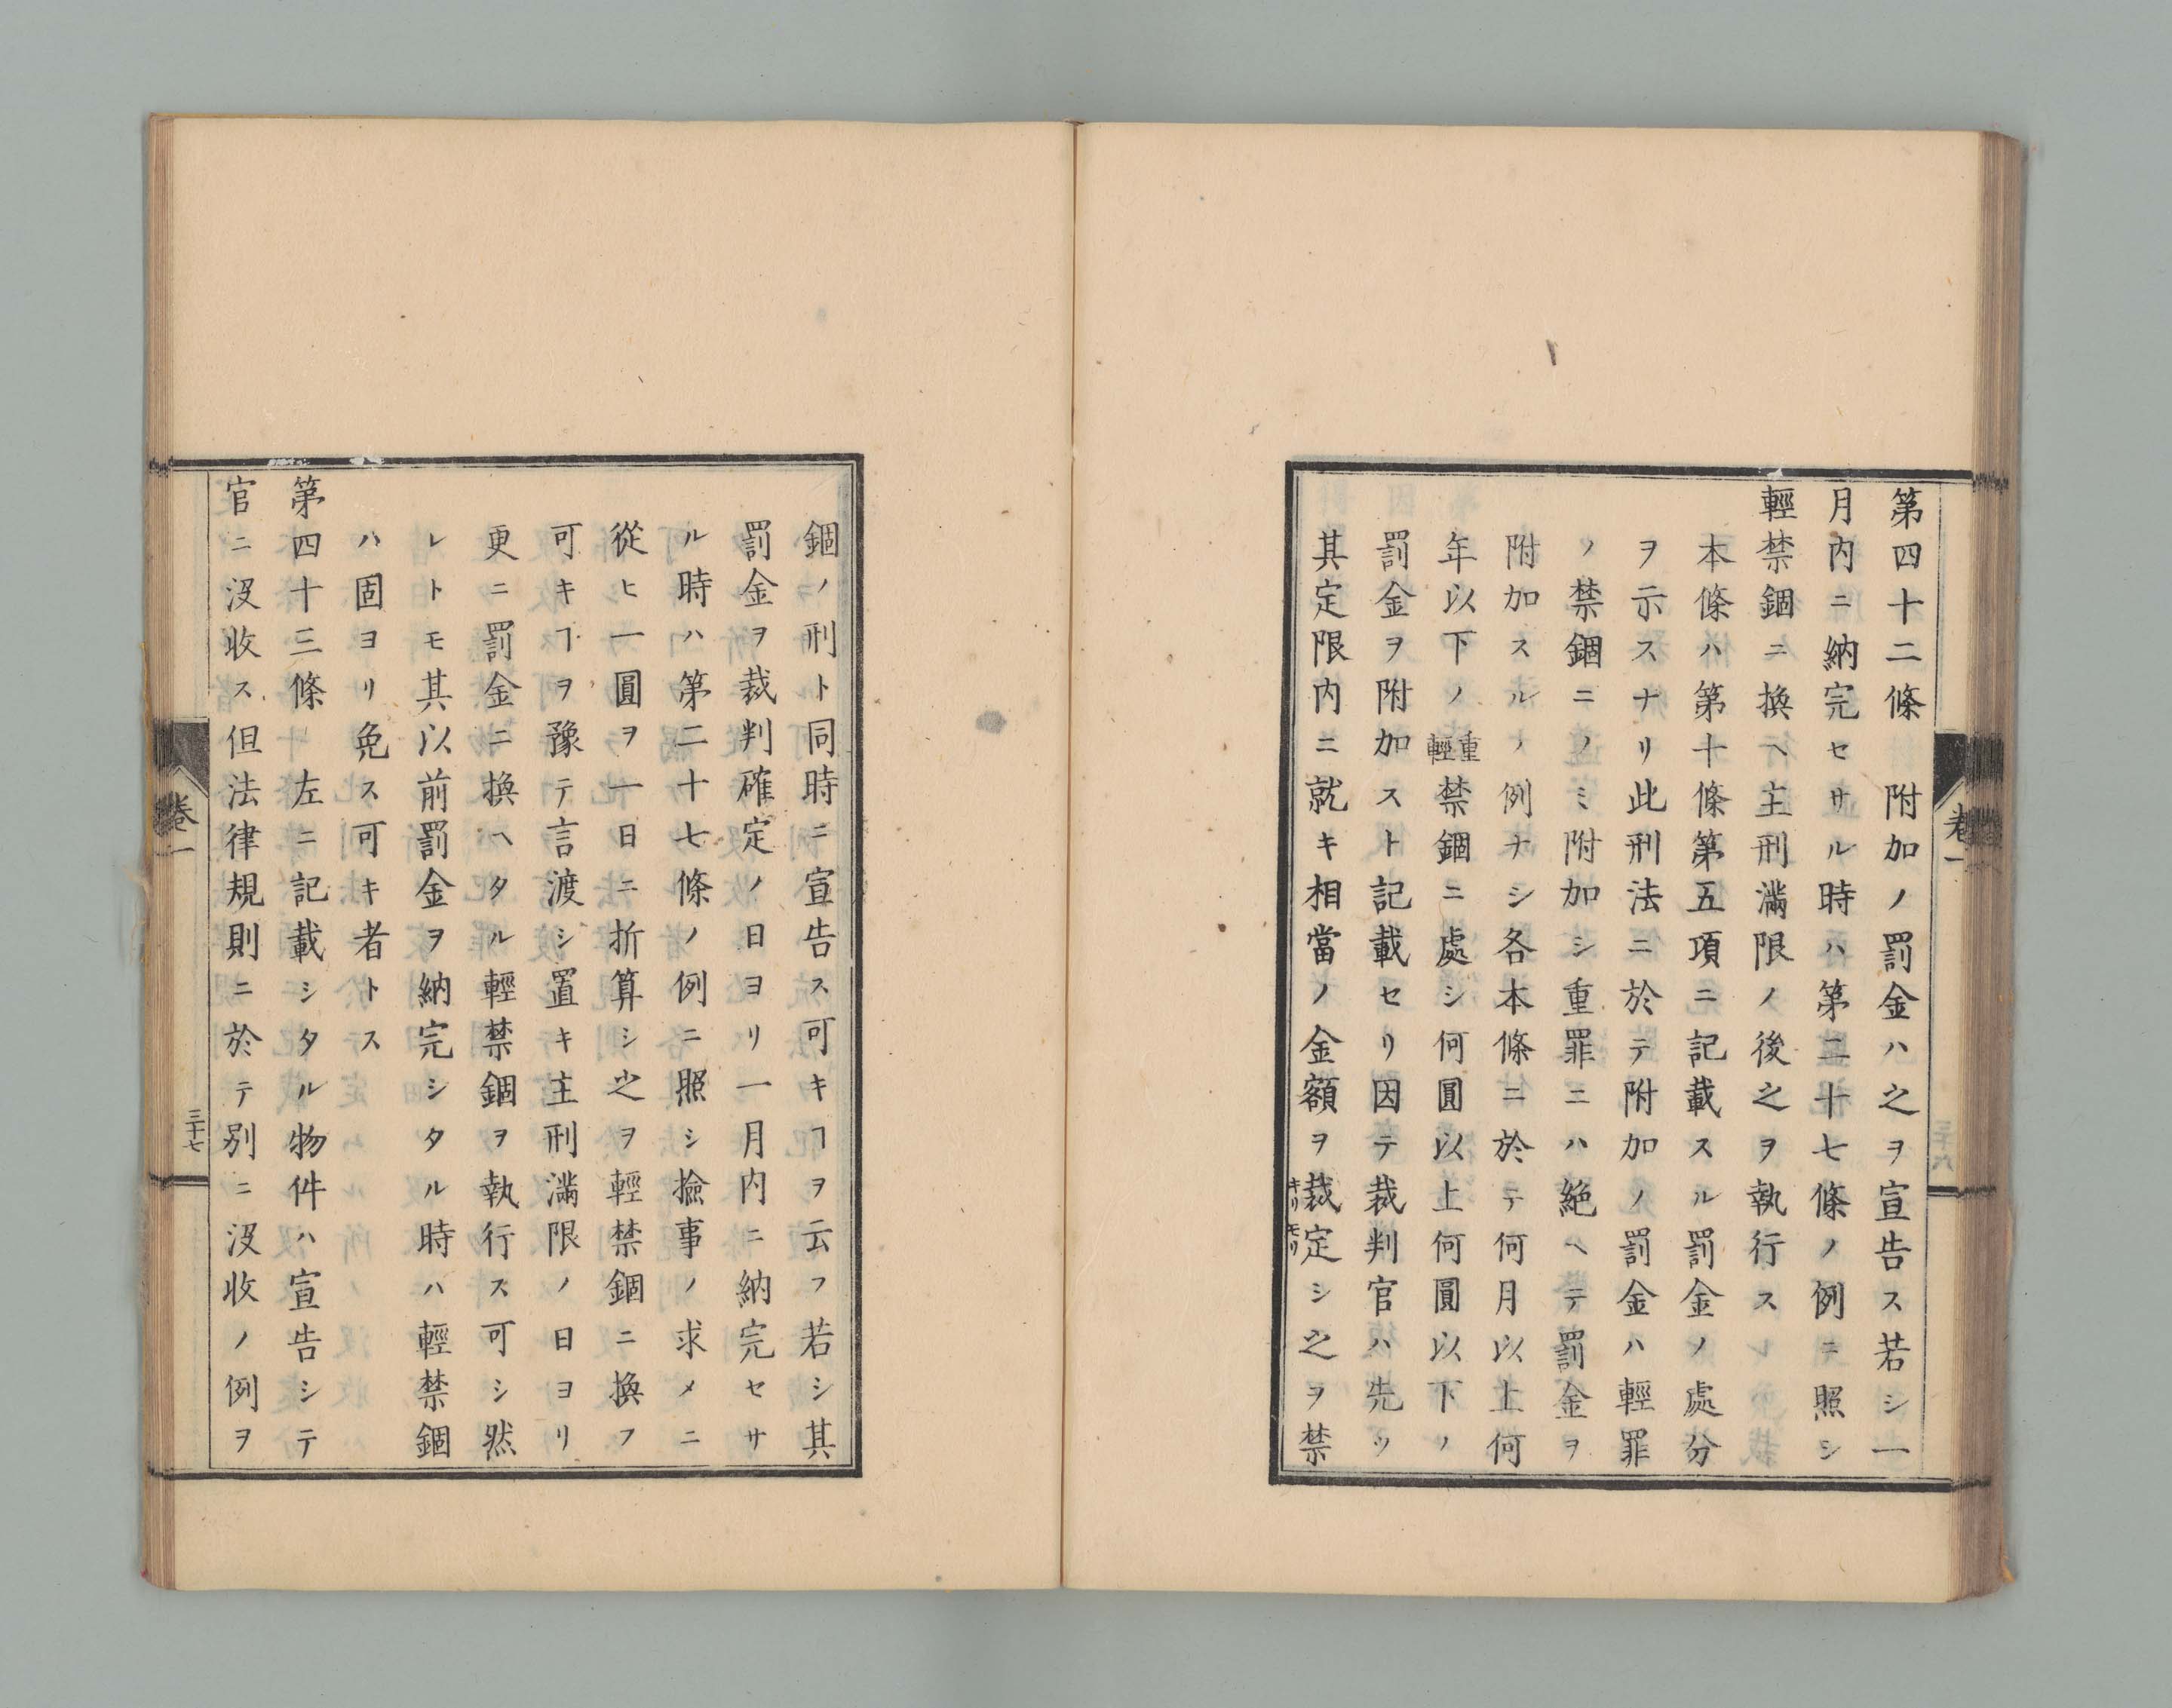 第四十二條　附加ノ罰金ハ之ヲ宣告ス若シ一
月内ニ納完セサル時ハ第二十七條ノ例ニ照シ
輕禁錮ニ換ヘ主刑滿限ノ後之ヲ執行ス
本條ハ第十條第五項ニ記載スル罰金ノ處分
ヲ示スナリ此刑法ニ於テ附加ノ罰金ハ輕罪
ノ禁錮ニノミ附加シ重罪ニハ絶ヘテ罰金ヲ
附加スルノ例ナシ各本條ニ於テ何月以上何
年以下ノ重輕禁錮ニ處シ何圓以上何圓以下ノ
罰金ヲ附加スト記載セリ因テ裁判官ハ先ツ
其定限内ニ就キ相當ノ金額ヲ裁定シ之ヲ禁
卷一
錮ノ刑ト同時ニ宣告ス可キヿヲ云フ若シ其
罰金ヲ裁判確定ノ日ヨリ一月内ニ納完セサ
ル時ハ第二十七條ノ例ニ照シ撿事ノ求メニ
從ヒ一圓ヲ一日ニ折算シ之ヲ輕禁錮ニ換フ
可キヿヲ豫テ言渡シ置キ主刑滿限ノ日ヨリ
更ニ罰金ニ換ヘタル輕禁錮ヲ執行ス可シ然
レトモ其以前罰金ヲ納完シタル時ハ輕禁錮
ハ固ヨリ免ス可キ者トス
第四十三條　左ニ記載シタル物件ハ宣告シテ
官ニ沒收ス但法律規則ニ於テ別ニ沒收ノ例ヲ
卷一
三十七